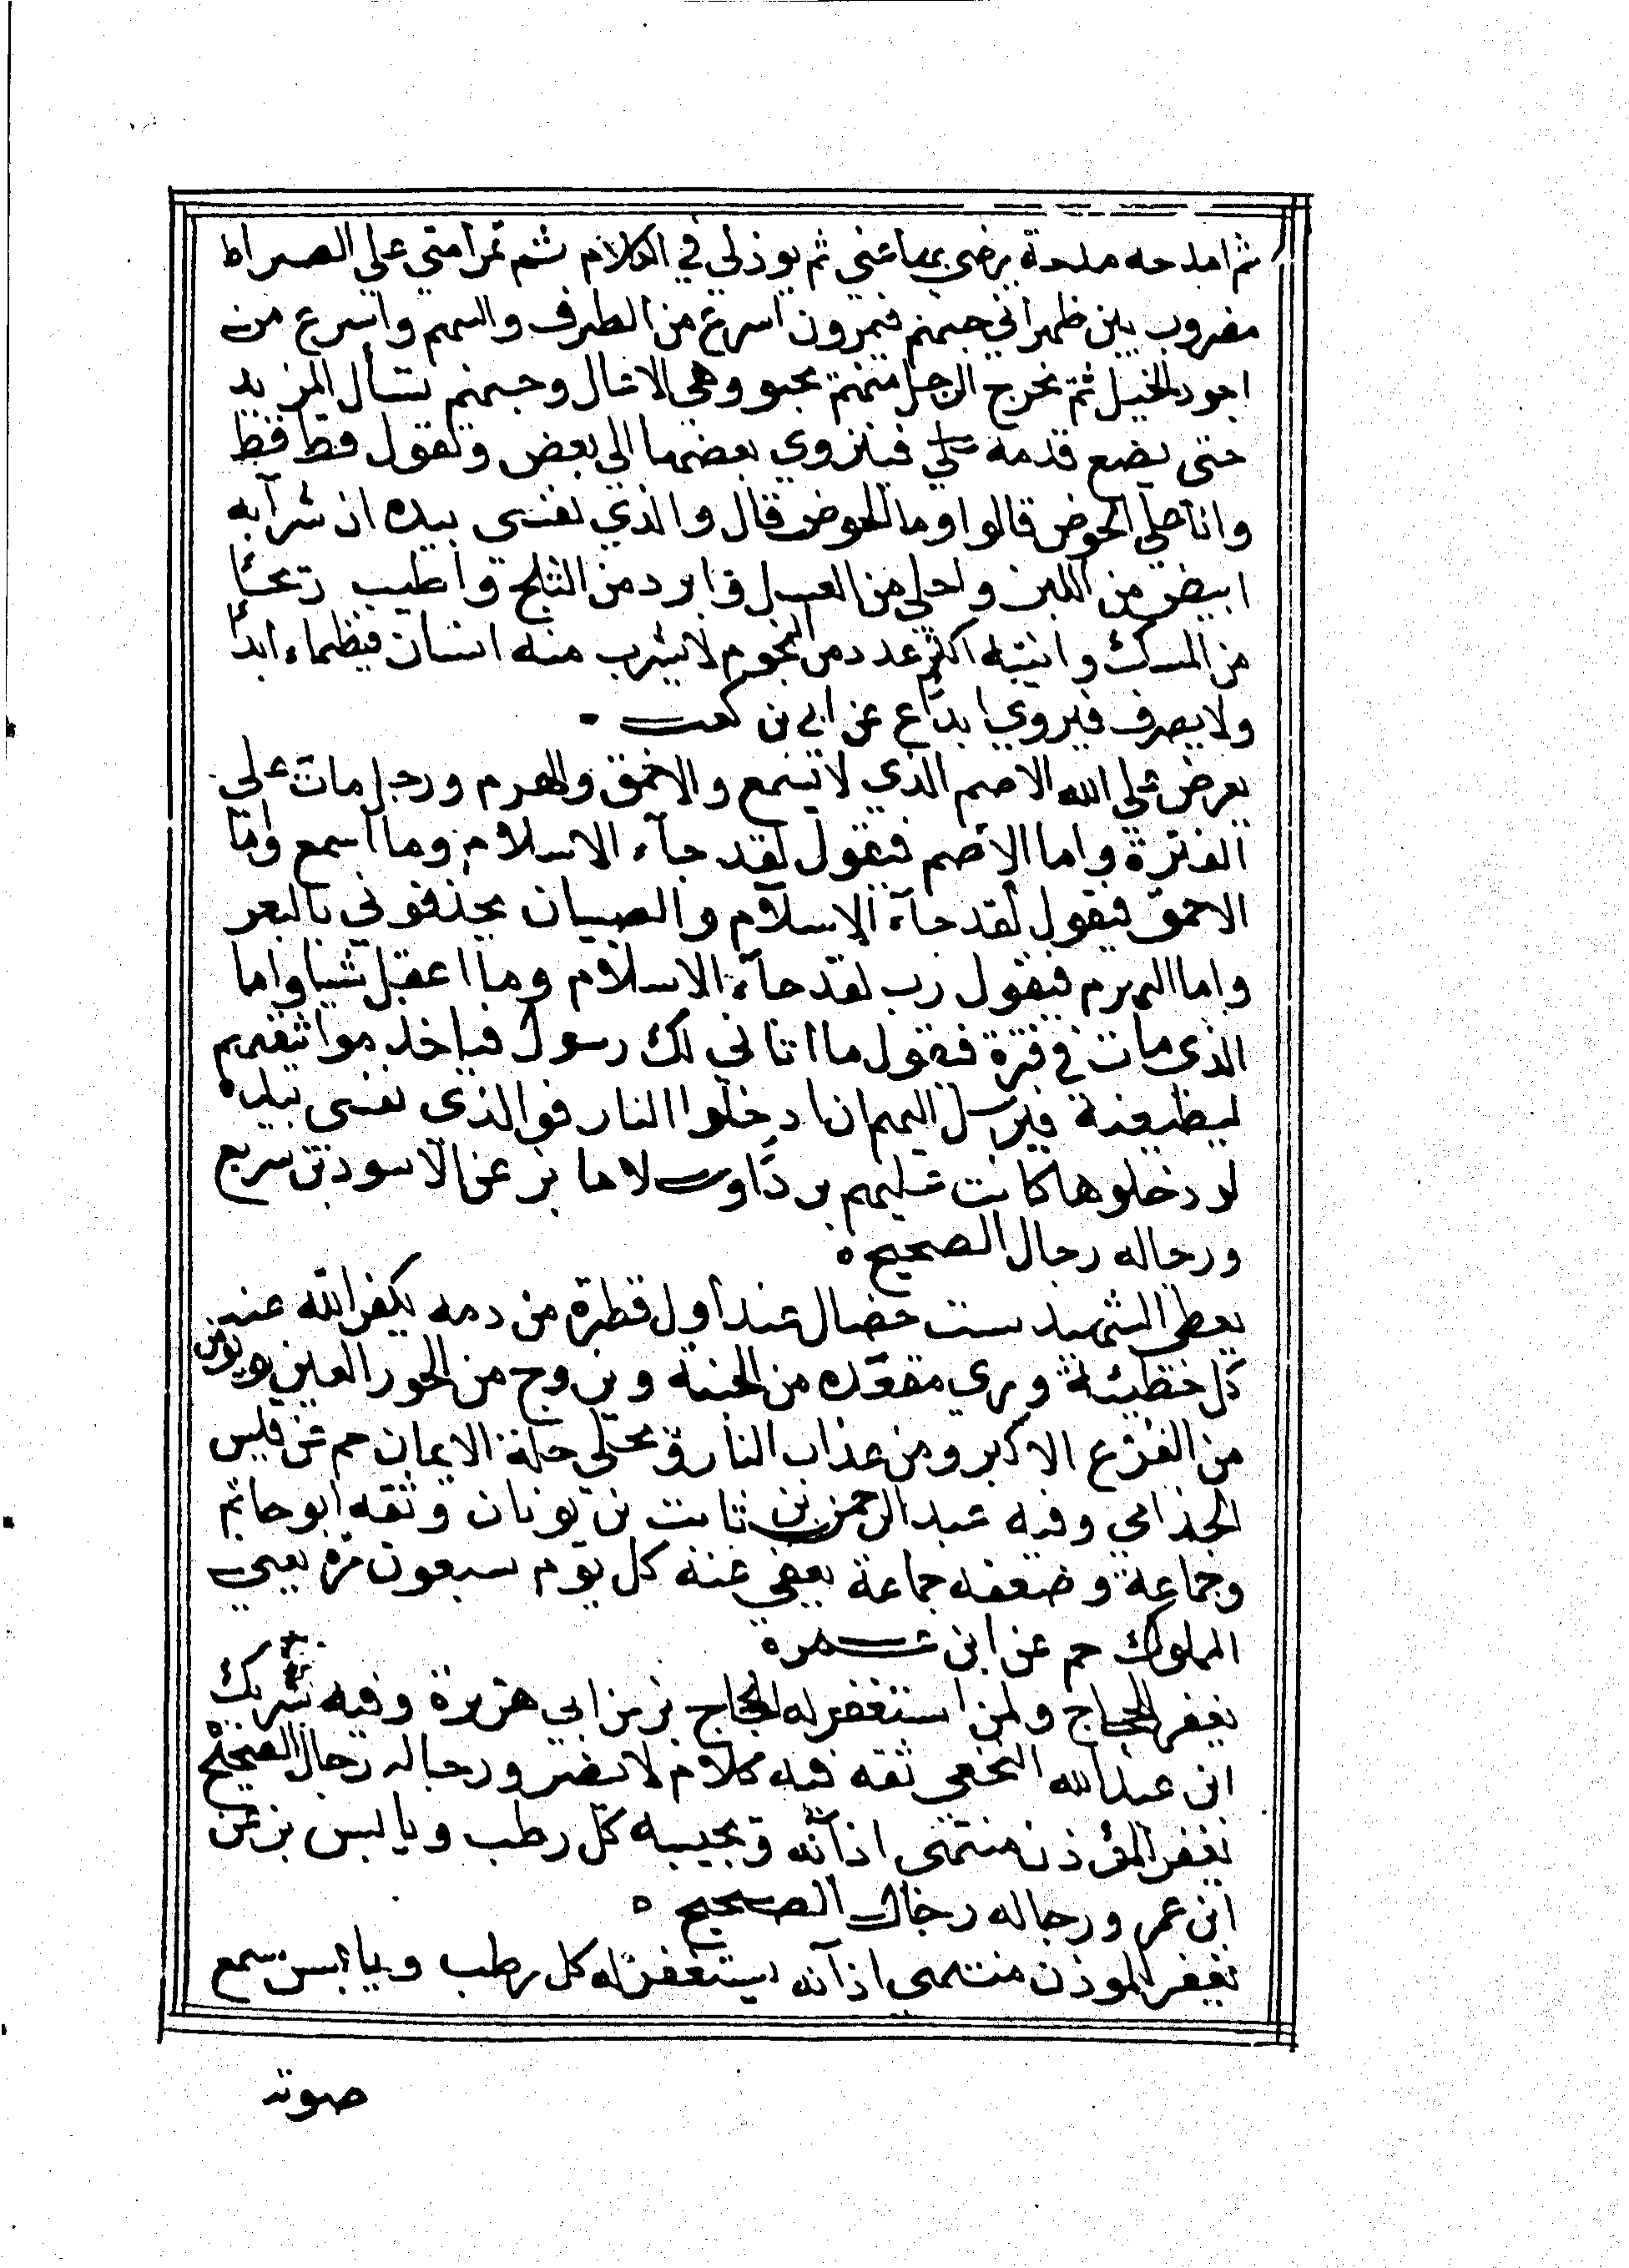 ثم امدحه مدحة يرضى بها عني ثم يوذن لي في الكلام ثم تمر امتي على الصراط
مضروب بين ظهراني جهنم فيمرون اسرع من الطرف والسهم واسرع من
اجود الخيل ثم تخرج الرجل منهم يحبو وهي الاعمال وجهنم تسأل المزيد
حتى يضع قدمه فينزوي بعضها الي بعض وتقول قط قط
وانا علي الحوض قالوا وما الحوض قال والذي نفسي بيده ان شرابه
ابيض من اللبن واحلي من العسل وابرد من الثلج واطيب ريحا
من المسك وانيته اكثر عددمن النجوم لا يشرب منه انسان فيظماء ابدا
ولا يصرف فيروي ابدا ع عن ابي بن كعب
يعرض علي الله الاصم الذي لا يسمع والاحمق والهرم ورجل مات علي
الفترة واما الاصم فيقول لقد جآء الاسلام وما اسمع واما
الاحمق فيقول لقد جآء الاسلام والصبيان يحذفوني بالبعر
واما الهرم فيقول رب لقد جآء الاسلام وما اعقل شيا واما
الذي مات في فترة فيقول ما اتاني لك رسول فياخذ مواثقهم
ليطيعنه فيرسل اليهم ان ادخلوا النار فوالذي نفسي بيده
لو دخلوها كانت عليهم بردا وسلاما بز عن الاسود بن سريع
ورجاله رجال الصحيح ٥
يعطى الشهيد ست خصال عند اول قطرة من دمه يكفر الله عنه
كل خطيئة ويري مقعده من الجنة ويزوج من الحور العين ويومن
من الفزع الاكبر ومن عذاب النار ويحلي حلة الايمان حم عن قيس
الجذامي وفيه عبد الرحمن بن ثابت بن ثوبان وثقه ابو حاتم
وجماعة وضعفه جماعة يعفي عنه كل يوم سبعون مرة يعني
المملوك حم عن ابن عمر
يغفر للحجاج ولمن استغفر له الحجاج بز عن ابي هريرة وفيه شريك
ابن عبدالله النخعي ثقه فيه كلام لا يضر ورجاله رجال الصحيح
يغفر للمؤذن منتهى اذآنه ويجيبه كل رطب ويابس بز عن
ابن عمر ورجاله رجال الصحيح ٥
يغفر للموذن منتهى اذآنه يستغفر له كل رطب ويابس سمع
صوته